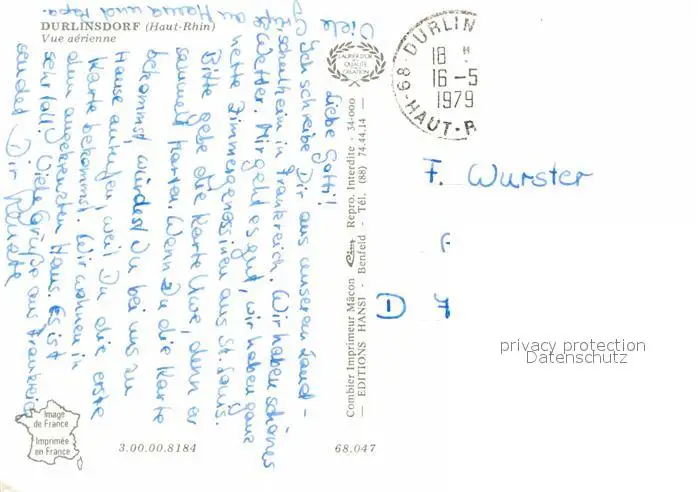 DURLINSDORF (Haut-Rhin)
Vue aérienne
Liebe Gotti!
Ich schreibe Dir aus unserem Land-
schulheim in Frankreich. Wir haben schönes
Wetter. Mir geht es gut, wir haben ganz
nette Zimmergenossinen aus St. Louis.
Bitte gebe die Karte Uwe, denn er
sammelt Karten. Wenn Du die Karte
bekommst, würdest Du bei uns zu
Hause anrufen, weil Du die erste
Karte bekommst. Wir wohnen in
dem angekreuzten Haus. Es ist
sehr toll. Viele Grüße aus Frankreich
sendet Dir Renate
Viele
Grüße
an Mama und Papa.
LAURIER D'OR
QUALITÉ
CRÉATION
Combier Imprimeur Mâcon Cim Repro. Interdite - 34-000
— EDITIONS HANSI - Benfeld - Tél. (88) 74.44.14
68-DURLIN
18 H
16-5
1979
HAUT-R
F. Wurster
D
privacy protection
Datenschutz
Image
de France
Imprimée
en France
3.00.00.8184
68.047